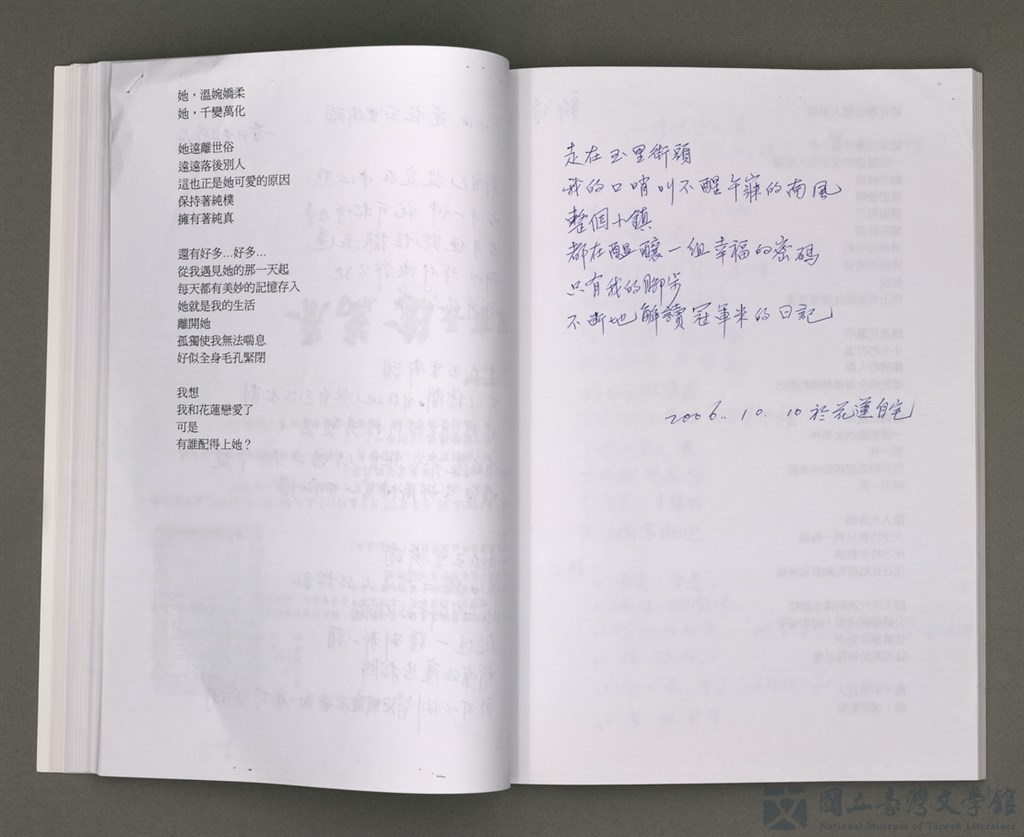 她，溫婉嬌柔
她，千變萬化
她遠離世俗
遠遠落後別人
這也正是她可愛的原因
保持著純樸
擁有著純真
還有好多...好多...
從我遇見她的那一天起
每天都有美妙的記憶存入
她就是我的生活
離開她
孤獨使我無法喘息
好似全身毛孔緊閉
我想
我和花蓮戀愛了
可是
有誰配得上她？
走在玉里街頭
我的口哨叫不醒午寐的南風
整個小鎮
都在醞釀一組幸福的密碼
只有我的腳步
不斷地解讀冠軍米的日記
2006. 10. 10 於花蓮自宅
國立臺灣文學館
National Museum of Taiwan Literature